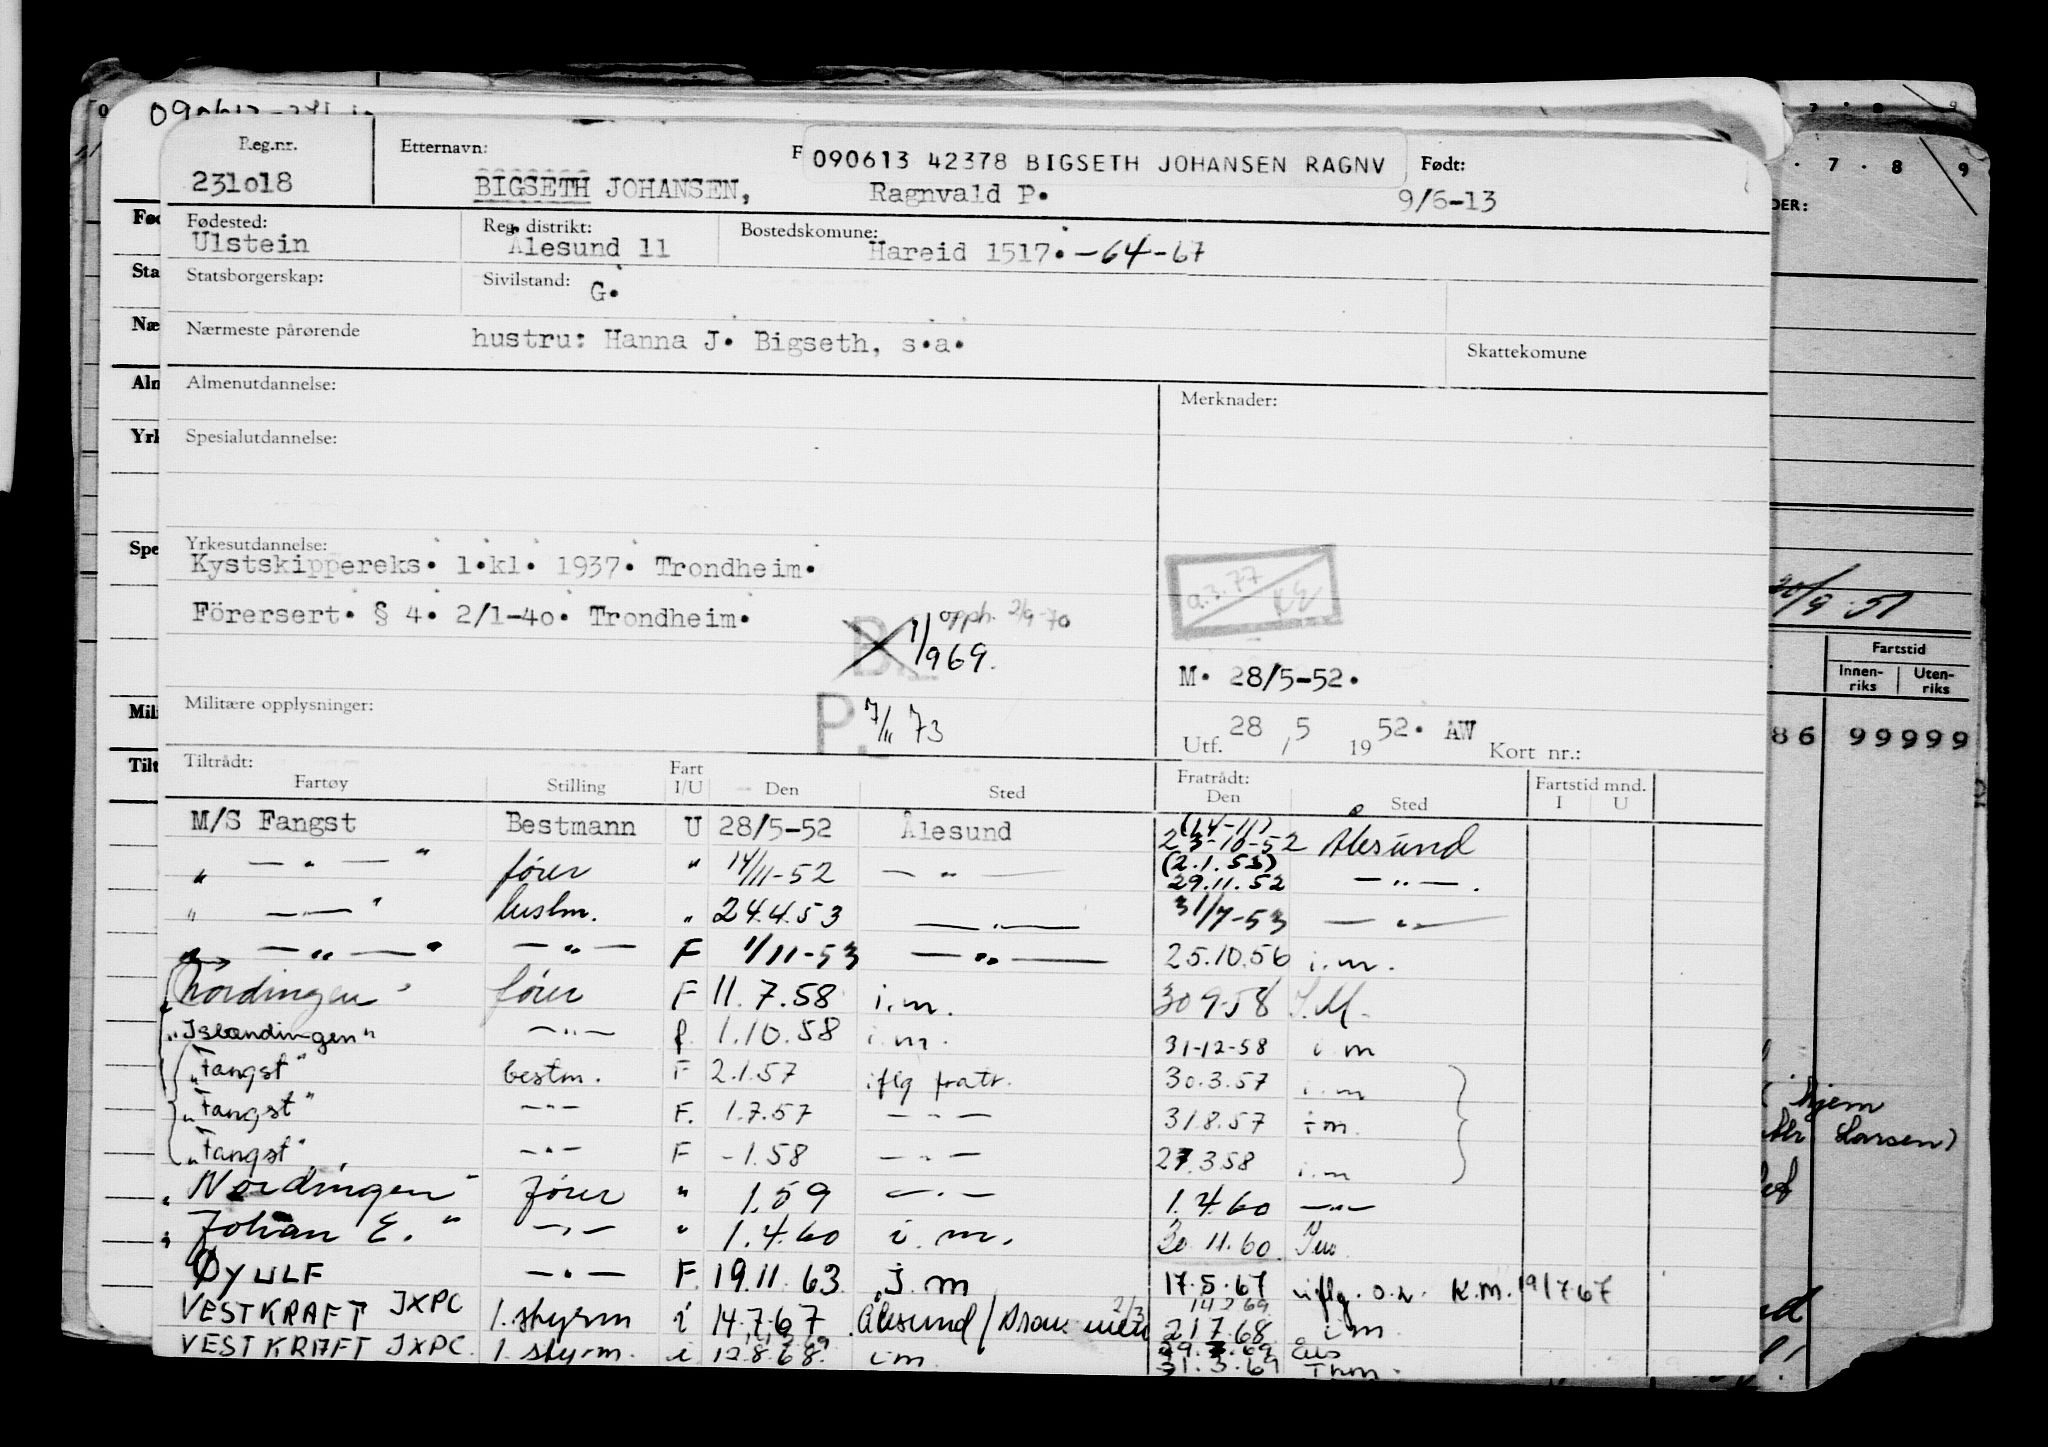 Reg.nr. Etternavn: 090613 42378 BIGSETH JOHANSEN RAGNV Født:
231018 BIGSETH JOHANSEN, Ragnvald P. 9/6-13
Fødested: Reg. distrikt: Bostedskomune:
Ulstein Ålesund 11 Hareid 1517. -64-67
Statsborgerskap: Sivilstand: G.
Nærmeste pårørende hustru: Hanna J. Bigseth, s.a. Skattekomune
Almenutdannelse: Merknader:
Spesialutdannelse:
Yrkesutdannelse:
Kystskippereks. 1.kl. 1937. Trondheim.
a.3.77
Förersert. § 4. 2/1-40. Trondheim.
opph. 2/9-70
B. 1/969.
M. 28/5-52.
Militære opplysninger: P. 7/11 73
Utf. 28 / 5 19 52. AW Kort nr.:
Tiltrådt: Fratrådt:
Fartøy Stilling Fart I/U Den Sted Den Sted Fartstid mnd. I U
M/S Fangst Bestmann U 28/5-52 Ålesund (14-11) 23-10-52 Ålesund
" — " — " fører " 14/11-52 — " — (2.1.53) 29.11.52 — " — .
" — — " bestm. " 24.4.53 — " — 31/7-53 — " —
" — " — " — " — F 1/11-53 — " — 25.10.56 i.m.
"Nordingen" fører F 11.7.58 i.m. 30 9-58 I.M.
"Islændingen" — " — f. 1.10.58 i.m. 31-12-58 i m
"Fangst" bestm. F 2.1.57 iflg fratr. 30.3.57 i.m
"Fangst" — " — F. 1.7.57 — " — 31.8.57 i m.
"Fangst" — " — F -1.58 — " — 27.3.58 i.m
"Nordingen" fører " 1.59 — " — 1.4.60 — " —
"Johan E." — " — " 1.4.60 i.m. 30.11.60
ØYULF — " — F. 19.11.63 i.m 17.5.67 iflg. o.r. K.M. 19/7 67
VESTKRAFT JXPC 1. styrm i 14.7.67 Ålesund / 2/3 14 2 69 21 7.68 i m
VESTKRAFT JXPC. 1. styrm. i 12.8.68. i m 31.3.69
Fartstid
Innen-riks Uten-riks
86 99999
hjem
Larsen)